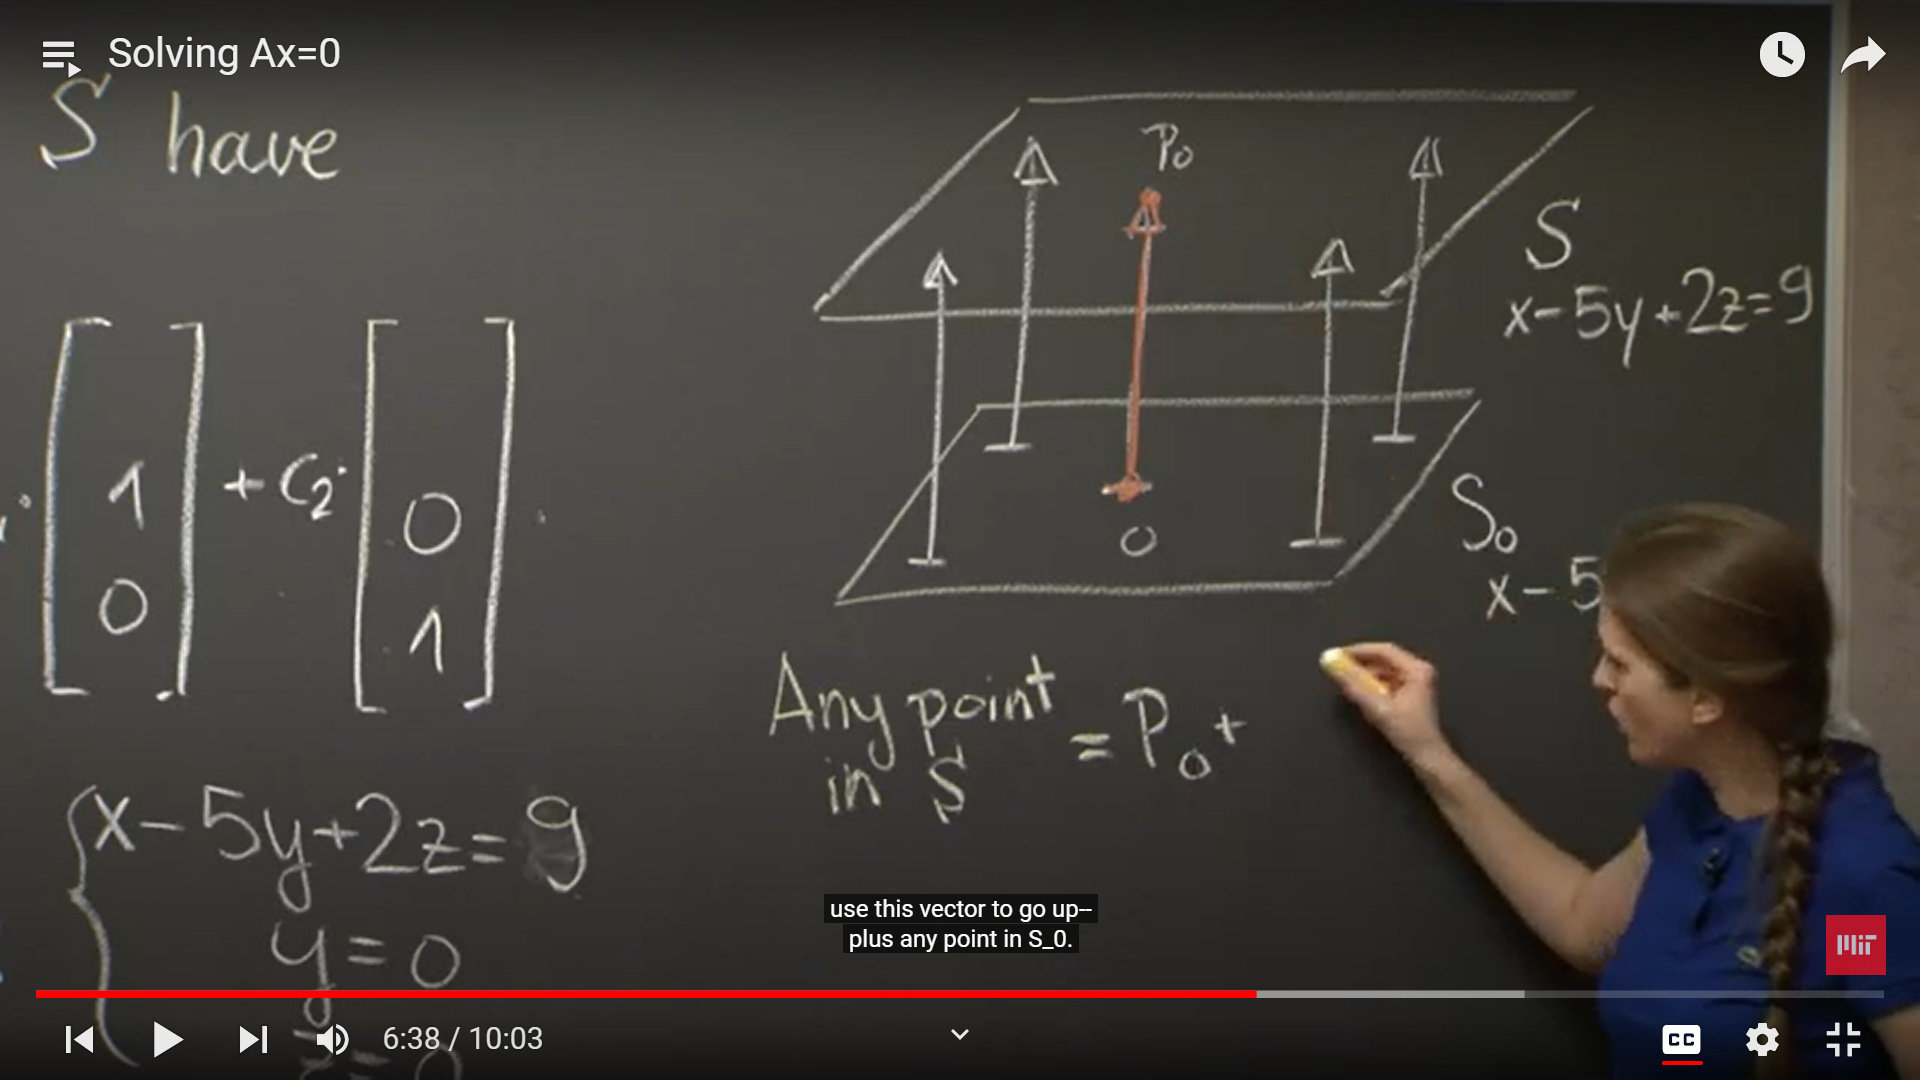 Solving Ax=0
S have
1
0
+ C2·
0
1
P0
S
x-5y+2z=9
0
S0
x-5
Any point
in S
= P0 +
x-5y+2z=9
y=0
use this vector to go up--
plus any point in S_0.
MIT
6:38 / 10:03
CC